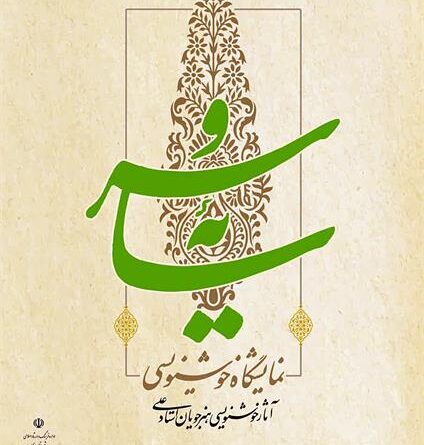 سایهٔ سرو
نمایشگاه خوشنویسی
آثار خوشنویسی هنرجویان استاد علی